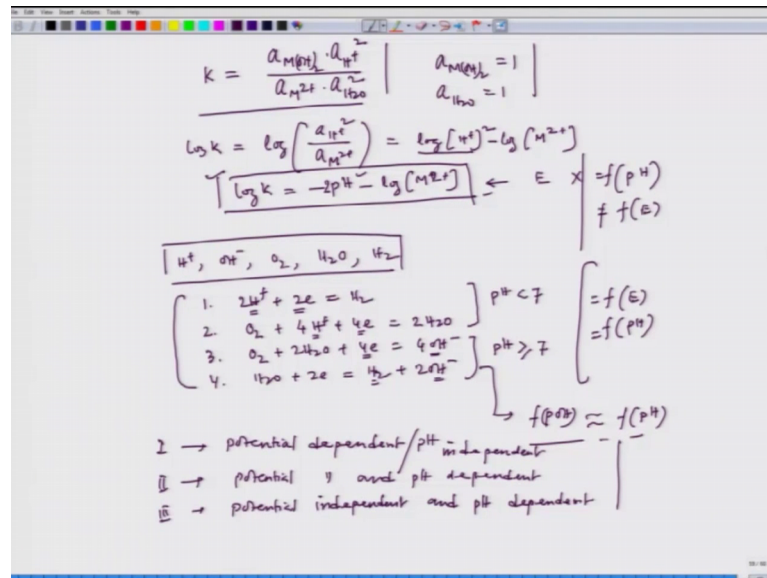 Edit View Insert Actions Tools Help
K = a_{M(OH)_2} · a_{H^+}^2 / a_{M^{2+}} · a_{H2O}^2 | a_{M(OH)_2} = 1 |
a_{H2O} = 1
log K = log ( a_{H^+}^2 / a_{M^{2+}} ) = log [H^+]^2 - log [M^{2+}]
log K = -2pH - log [M^{2+}] ← E X = f(pH)
≠ f(E)
H^+, OH^-, O_2, H_2O, H_2
1. 2H^+ + 2e = H_2
2. O_2 + 4H^+ + 4e = 2H2O ] pH < 7 = f(E)
3. O_2 + 2H2O + 4e = 4OH^- = f(pH)
4. H2O + 2e = H_2 + 2OH^- ] pH ≥ 7
→ f(pOH) ≈ f(pH)
I → potential dependent / pH independent
II → potential " and pH dependent
III → potential independent and pH dependent